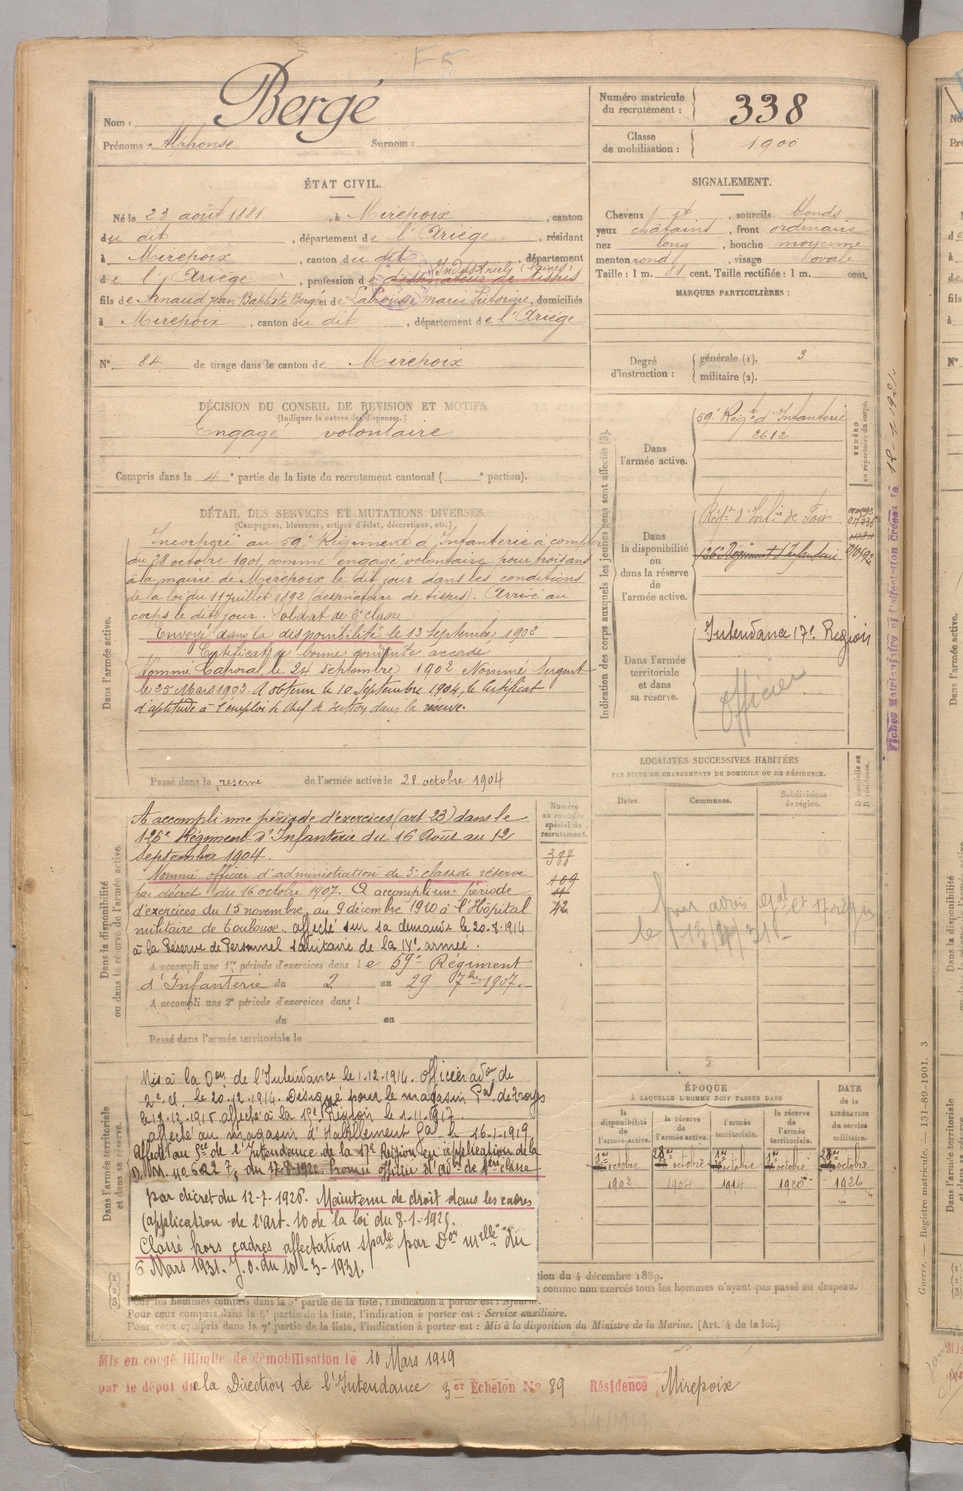 Nom : Bergé
Prénoms : Alphonse Surnom :
Numéro matricule du recrutement : 338
Classe de mobilisation : 1900
ÉTAT CIVIL.
Né le 23 août 1881, à Mirepoix, canton
du dit, département de l'Ariège, résidant
à Mirepoix, canton du dit, département
de l'Ariège, profession de dessinateur de tissus
Industriel
fils de Arnaud Jean Baptiste Bergé et de Labrousse Marie Victorine, domiciliés
à Mirepoix, canton du dit, département de l'Ariège
N° 84 de tirage dans le canton de Mirepoix
SIGNALEMENT.
Cheveux et, sourcils blonds
yeux châtains, front ordinaire
nez long, bouche moyenne
menton rond, visage ovale
Taille : 1 m. 81 cent. Taille rectifiée : 1 m. cent.
MARQUES PARTICULIÈRES :
Degré d'instruction : générale (1). 3
militaire (2).
DÉCISION DU CONSEIL DE REVISION ET MOTIFS.
(Indiquer la nature des dispenses.)
Engagé volontaire
Compris dans la 4e partie de la liste du recrutement cantonal ( e portion).
DÉTAIL DES SERVICES ET MUTATIONS DIVERSES.
(Campagnes, blessures, actions d'éclat, décorations, etc.)
Dans l'armée active.
Incorporé au 59e Régiment d'Infanterie à compter
du 28 octobre 1901, comme engagé volontaire pour trois ans
à la mairie de Mirepoix le dit jour dans les conditions
de la loi du 11 juillet 1892 (dessinateur de tissus). Arrivé au
corps le dit jour. Soldat de 2e classe
Envoyé dans la disponibilité le 13 Septembre 1902
Certificat de bonne conduite accordé
Nommé Caporal le 24 septembre 1902 Nommé Sergent
le 25 Mars 1903. A obtenu le 10 Septembre 1904, le Certificat
d'aptitude à l'emploi de Chef de Section dans la réserve.
Passé dans la réserve de l'armée active le 28 octobre 1904
Indication des corps auxquels les jeunes gens sont affectés (3).
Dans l'armée active. 59e Régt d'Infanterie
2612
NUMÉRO au répertoire du corps.
Dans la disponibilité ou dans la réserve de l'armée active.
Régt d'Infie de Foix
126e Régiment d'Infanterie
Dans l'armée territoriale et dans sa réserve.
Intendance 17e Région
Officier
Fiches Matriculaire et d'affectation Créées le 18-1-1921.
Dans la disponibilité ou dans la réserve de l'armée active.
A accompli une période d'exercices (art 23) dans le
126e Régiment d'Infanterie du 16 Août au 12
Septembre 1904.
Nommé officier d'administration de 3e classe de réserve
par décret du 16 octobre 1907. A accompli une période
d'exercices du 15 novembre au 9 décembre 1910 à l'Hôpital
militaire de Toulouse. Affecté sur sa demande le 20-8-1914
à la Réserve de Personnel sanitaire de la IVe armée.
A accompli une 1re période d'exercices dans le 59e Régiment
d'Infanterie du 2 au 29 7bre 1907.
A accompli une 2e période d'exercices dans l
du au
Passé dans l'armée territoriale le
Numéro au contrôle spécial du recrutement.
388
109
42
LOCALITÉS SUCCESSIVES HABITÉES
PAR SUITE DE CHANGEMENTS DE DOMICILE OU DE RÉSIDENCE.
Dates. Communes. Subdivisions de région. D domicile ou R résidence.
Dans l'armée territoriale et dans sa réserve.
Mis à la Don de l'Intendance le 1-12-1914. Officier adon de
2e cl. le 20-12-1914. Désigné pour le magasin Gal de Troyes
le 13-12-1915 affecté à la 15e Région le 1-11-1917.
affecté au magasin d'Habillement Gal le 16-1-1919
Affecté au Sce de l'Intendance de la 17e Région en application de la
D.M. n° 6227, du 17-8-1920. Promu officier d'adon de 1ère classe
par décret du 12-7-1926. Maintenu de droit dans les cadres
(application de l'art. 10 de la loi du 8-1-1925.
Classé hors cadres affectation spale par Don melle du
6 Mars 1931. J.O. du 10-3-1931.
ÉPOQUE À LAQUELLE L'HOMME DOIT PASSER DANS
la disponibilité de l'armée active. la réserve de l'armée active. l'armée territoriale. la réserve de l'armée territoriale. DATE de la LIBÉRATION du service militaire.
1er octobre 28 octobre 1er octobre 1er octobre 28 octobre
1902 1904 1914 1920 1926
tion du 4 décembre 1889.
u comme non exercés tous les hommes n'ayant pas passé au drapeau.
Pour les hommes compris dans la 5e partie de la liste, l'indication à porter est : Ajourné.
Pour ceux compris dans la 6e partie de la liste, l'indication à porter est : Service auxiliaire.
Pour ceux compris dans la 7e partie de la liste, l'indication à porter est : Mis à la disposition du Ministre de la Marine. (Art. 4 de la loi.)
Mis en congé illimité de démobilisation le 10 Mars 1919
par le dépôt de la Direction de l'Intendance 3er Echelon N° 89 Résidence Mirepoix
Guerre. — Registre matricule. — 131-80-1901. 3